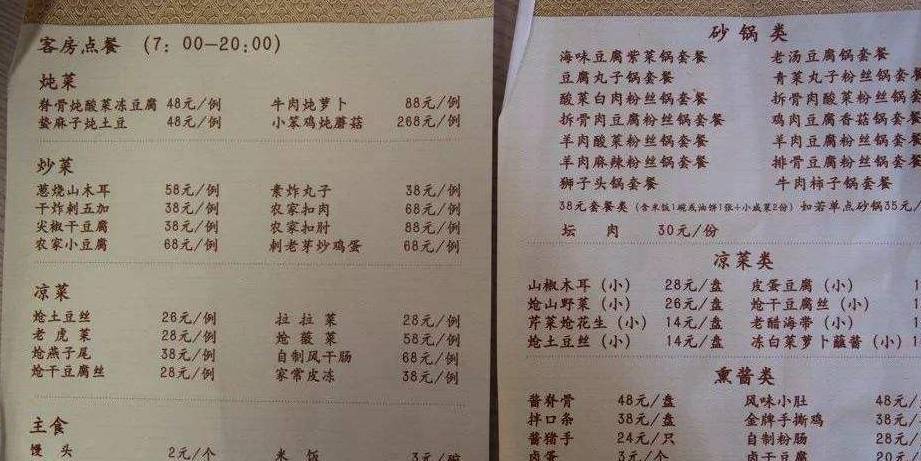 客房点餐 (7: 00—20:00)
炖菜
脊骨炖酸菜冻豆腐 48元/例 牛肉炖萝卜 88元/例
蛰麻子炖土豆 48元/例 小笨鸡炖蘑菇 268元/例
炒菜
葱烧山木耳 58元/例 素炸丸子 38元/例
干炸刺五加 38元/例 农家扣肉 68元/例
尖椒干豆腐 38元/例 农家扣肘 88元/例
农家小豆腐 68元/例 刺老芽炒鸡蛋 68元/例
凉菜
炝土豆丝 26元/例 拉拉菜 28元/例
老虎菜 28元/例 炝薇菜 58元/例
炝燕子尾 38元/例 自制风干肠 68元/例
炝干豆腐丝 28元/例 家常皮冻 38元/例
主食
馒头 2元/个 米饭 3元/碗
砂锅类
海味豆腐紫菜锅套餐 老汤豆腐锅套餐
豆腐丸子锅套餐 青菜丸子粉丝锅套
酸菜白肉粉丝锅套餐 拆骨肉酸菜锅套餐
拆骨肉豆腐粉丝锅套餐 鸡肉豆腐香菇锅套餐
羊肉酸菜粉丝锅套餐 羊肉豆腐粉丝锅套餐
羊肉麻辣粉丝锅套餐 排骨豆腐粉丝锅套餐
狮子头锅套餐 牛肉柿子锅套餐
38元套餐类 (含米饭1碗或油饼1张+小咸菜2份) 如若单点砂锅35元/
坛肉 30元/份
凉菜类
山椒木耳 (小) 28元/盘 皮蛋豆腐 (小) 1
炝山野菜 (小) 26元/盘 炝干豆腐丝 (小)
芹菜炝花生 (小) 14元/盘 老醋海带 (小) 1
炝土豆丝 (小) 14元/盘 冻白菜萝卜蘸酱 (小) 1
熏酱类
酱脊骨 48元/盘 风味小肚 48元/
拌口条 38元/盘 金牌手撕鸡 38元/
酱猪手 24元/只 自制粉肠 28元/
卤蛋 3元/个 卤干豆腐 20元/